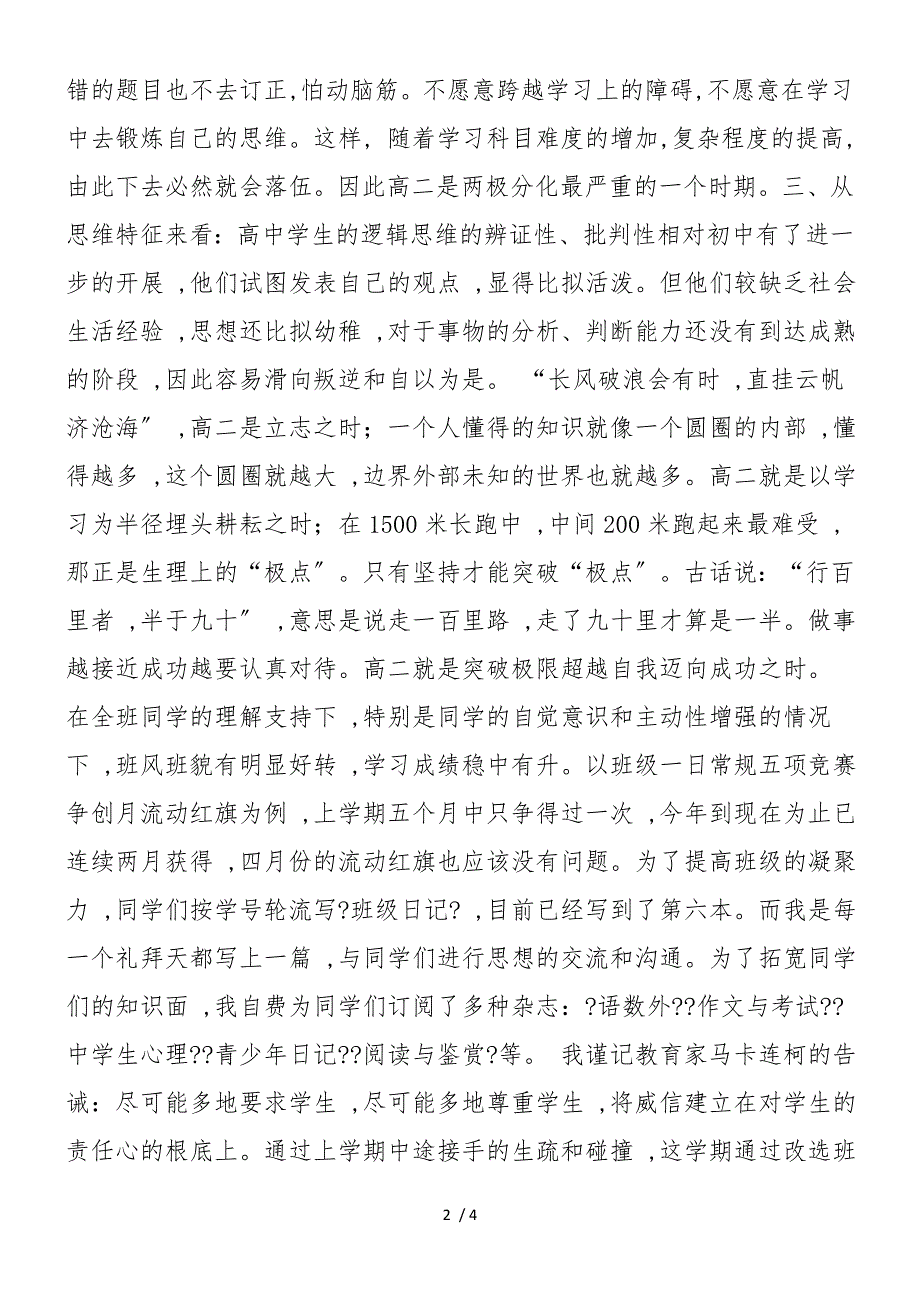 错的题目也不去订正,怕动脑筋。不愿意跨越学习上的障碍,不愿意在学习
中去锻炼自己的思维。这样, 随着学习科目难度的增加,复杂程度的提高,
由此下去必然就会落伍。因此高二是两极分化最严重的一个时期。三、从
思维特征来看：高中学生的逻辑思维的辨证性、批判性相对初中有了进一
步的开展 ,他们试图发表自己的观点 ,显得比拟活泼。但他们较缺乏社会
生活经验 ,思想还比拟幼稚 ,对于事物的分析、判断能力还没有到达成熟
的阶段 ,因此容易滑向叛逆和自以为是。 “长风破浪会有时 ,直挂云帆
济沧海〞 ,高二是立志之时；一个人懂得的知识就像一个圆圈的内部 ,懂
得越多 ,这个圆圈就越大 ,边界外部未知的世界也就越多。高二就是以学
习为半径埋头耕耘之时；在 1500 米长跑中 ,中间 200 米跑起来最难受 ,
那正是生理上的“极点〞。只有坚持才能突破“极点〞。古话说：“行百
里者 ,半于九十〞 ,意思是说走一百里路 ,走了九十里才算是一半。做事
越接近成功越要认真对待。高二就是突破极限超越自我迈向成功之时。
在全班同学的理解支持下 ,特别是同学的自觉意识和主动性增强的情况
下 ,班风班貌有明显好转 ,学习成绩稳中有升。以班级一日常规五项竞赛
争创月流动红旗为例 ,上学期五个月中只争得过一次 ,今年到现在为止已
连续两月获得 ,四月份的流动红旗也应该没有问题。为了提高班级的凝聚
力 ,同学们按学号轮流写?班级日记? ,目前已经写到了第六本。而我是每
一个礼拜天都写上一篇 ,与同学们进行思想的交流和沟通。为了拓宽同学
们的知识面 ,我自费为同学们订阅了多种杂志：?语数外??作文与考试??
中学生心理??青少年日记??阅读与鉴赏?等。 我谨记教育家马卡连柯的告
诫：尽可能多地要求学生 ,尽可能多地尊重学生 ,将威信建立在对学生的
责任心的根底上。通过上学期中途接手的生疏和碰撞 ,这学期通过改选班
2 / 4